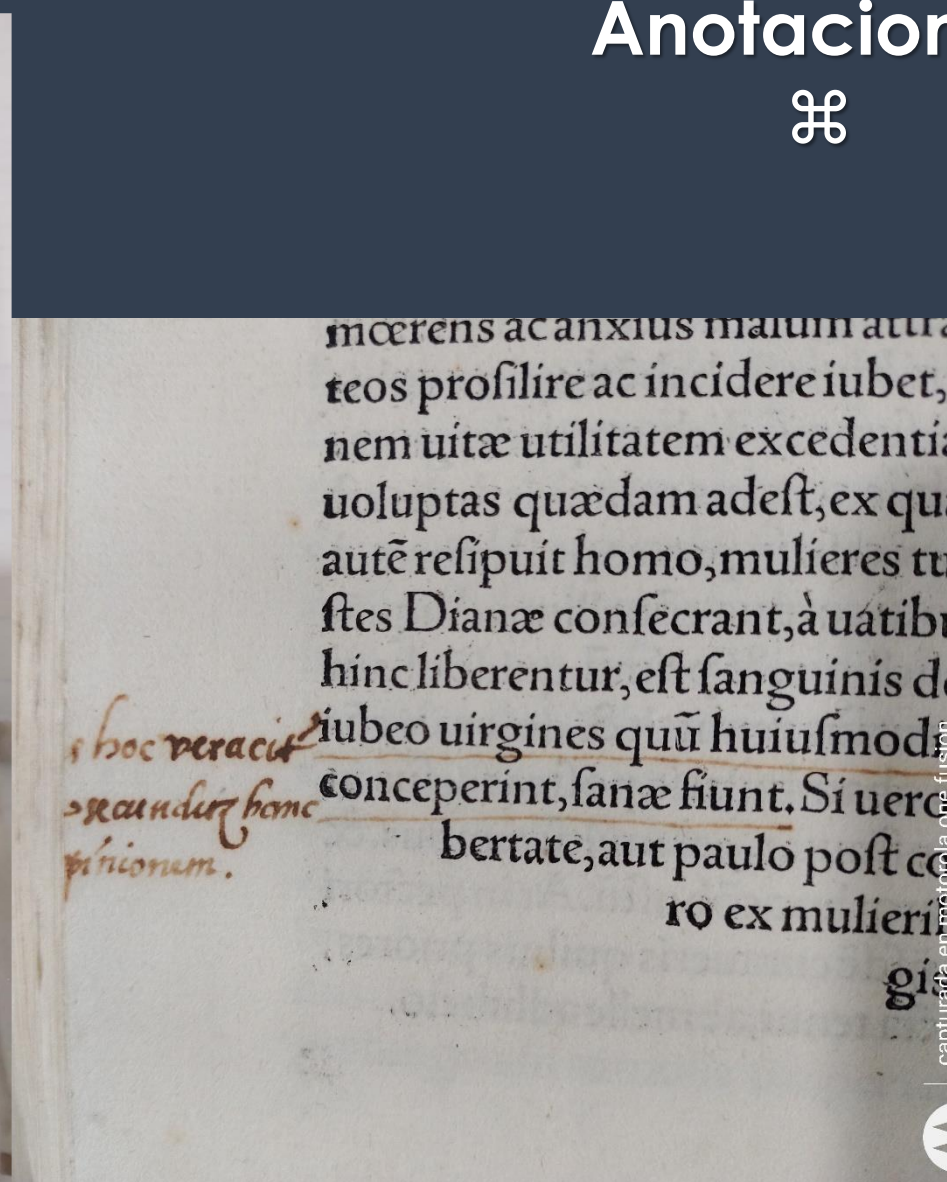 Anotacion
mœrens ac anxius malum attra
teos proſilire ac incidere iubet,
nem uitæ utilitatem excedentia
uoluptas quædam adeſt, ex qu
autē reſipuit homo, mulieres tu
ſtes Dianæ conſecrant, à uatibu
hinc liberentur, eſt ſanguinis d
iubeo uirgines quū huiuſmodi
conceperint, ſanæ fiunt. Si uero
bertate, aut paulo poſt co
ro ex mulieri
gis
hoc veracit
hanc
pinionem.
capturada en motorola one fusion